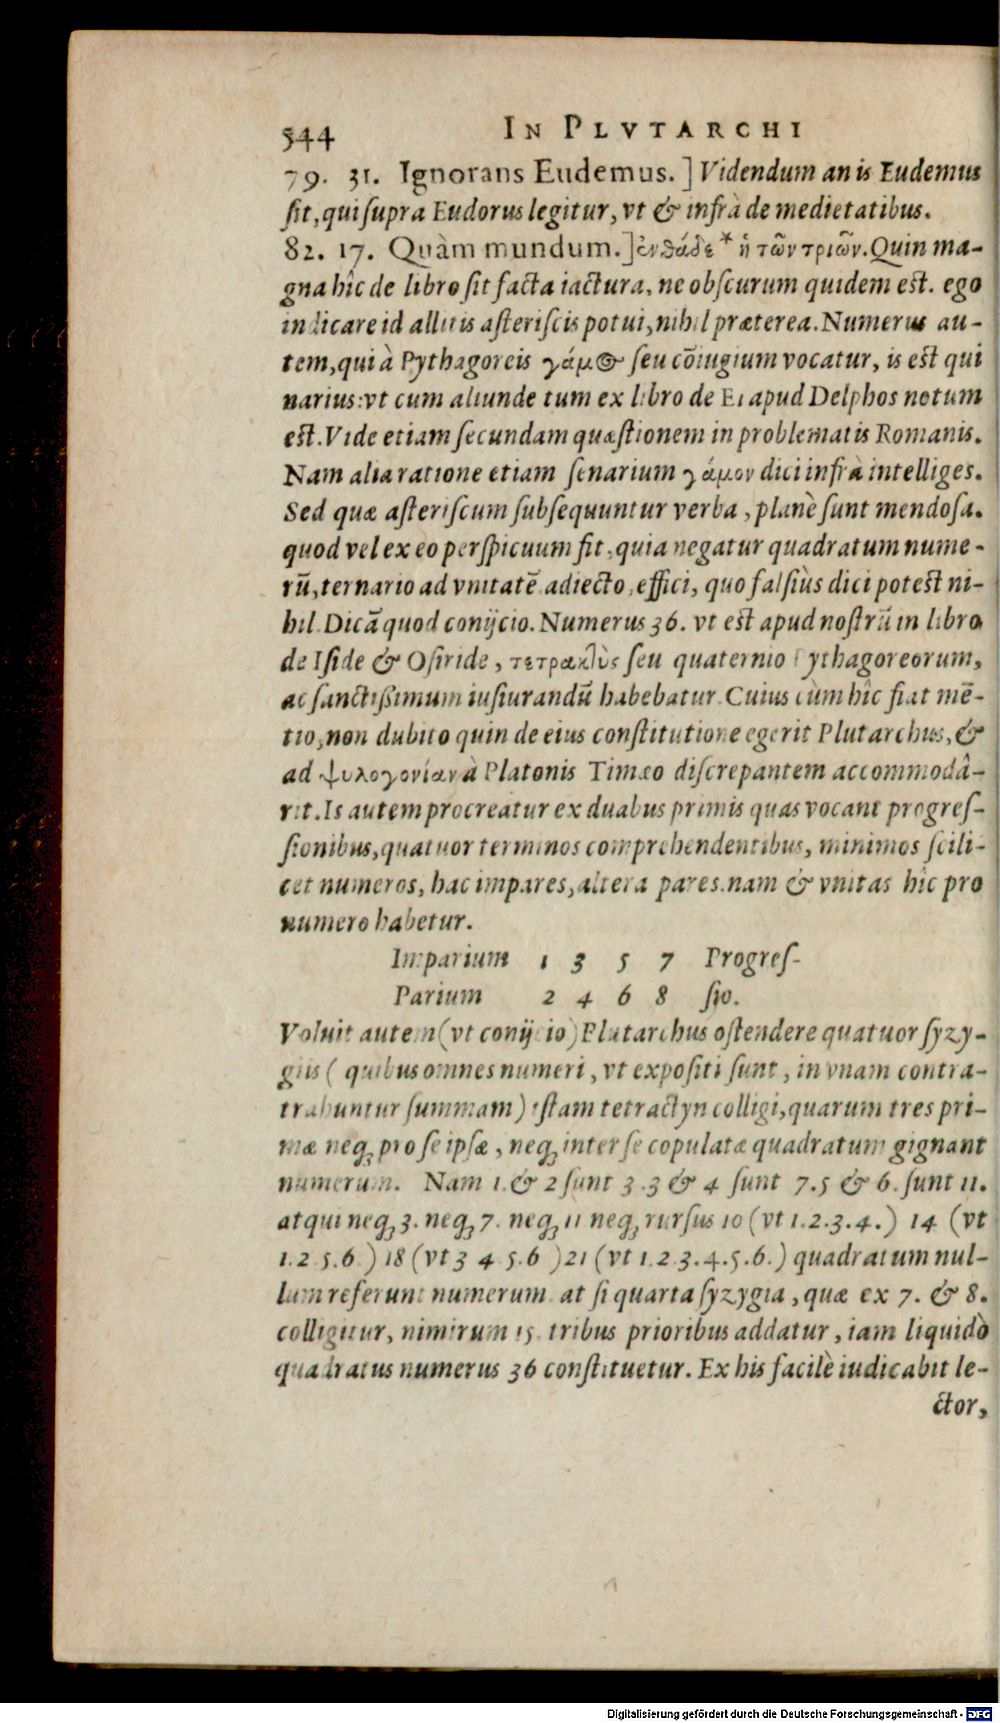 544 IN PLVTARCHI
79. 31. Ignorans Eudemus.] Videndum an is Eudemus
sit, qui supra Eudorus legitur, vt & infrà de medietatibus.
82. 17. Quàm mundum.] ἐνθάδε * ἡ τῶν τριῶν. Quin ma-
gna hîc de libro sit facta iactura, ne obscurum quidem est. ego
indicare id allitis asteriscis potui, nihil præterea. Numerus au-
tem, qui à Pythagoreis γάμος seu cõiugium vocatur, is est qui
narius: vt cum aliunde tum ex libro de EI apud Delphos notum
est. Vide etiam secundam quæstionem in problematis Romanis.
Nam alia ratione etiam senarium γάμον dici infrà intelliges.
Sed quæ asteriscum subsequuntur verba, planè sunt mendosa.
quod vel ex eo perspicuum fit, quia negatur quadratum nume-
rũ, ternario ad vnitatẽ adiecto, effici, quo falsiùs dici potest ni-
hil. Dicã quod conijcio. Numerus 36. vt est apud nostrũ in libro
de Iside & Osiride, τετρακτὺς seu quaternio Pythagoreorum,
ac sanctißimum iusiurandũ habebatur. Cuius cùm hîc fiat mẽ-
tio, non dubito quin de eius constitutione egerit Plutarchus, &
ad ψυλογονίαν à Platonis Timæo discrepantem accommodâ-
rit. Is autem procreatur ex duabus primis quas vocant progres-
sionibus, quatuor terminos comprehendentibus, minimos scili-
cet numeros, hac impares, altera pares. nam & vnitas hîc pro
numero habetur.
Imparium 1 3 5 7 Progres-
Parium 2 4 6 8 sio.
Voluit autem (vt conijcio) Plutarchus ostendere quatuor syzy-
giis ( quibus omnes numeri, vt expositi sunt, in vnam contra-
trabuntur summam) istam tetractyn colligi, quarum tres pri-
mæ neq; pro se ipsæ, neq; inter se copulatæ quadratum gignant
numerum. Nam 1. & 2 sunt 3. 3 & 4 sunt 7. 5 & 6. sunt 11.
atqui neq; 3. neq; 7. neq; 11 neq; rursus 10 (vt 1.2.3.4.) 14 (vt
1.2 5.6.) 18 (vt 3 4 5.6 ) 21 (vt 1.2.3.4.5.6.) quadratum nul-
lum referunt numerum. at si quarta syzygia, quæ ex 7. & 8.
colligitur, nimirum 15. tribus prioribus addatur, iam liquidò
quadratus numerus 36 constituetur. Ex his facilè iudicabit le-
ctor,
Digitalisierung gefördert durch die Deutsche Forschungsgemeinschaft - DFG